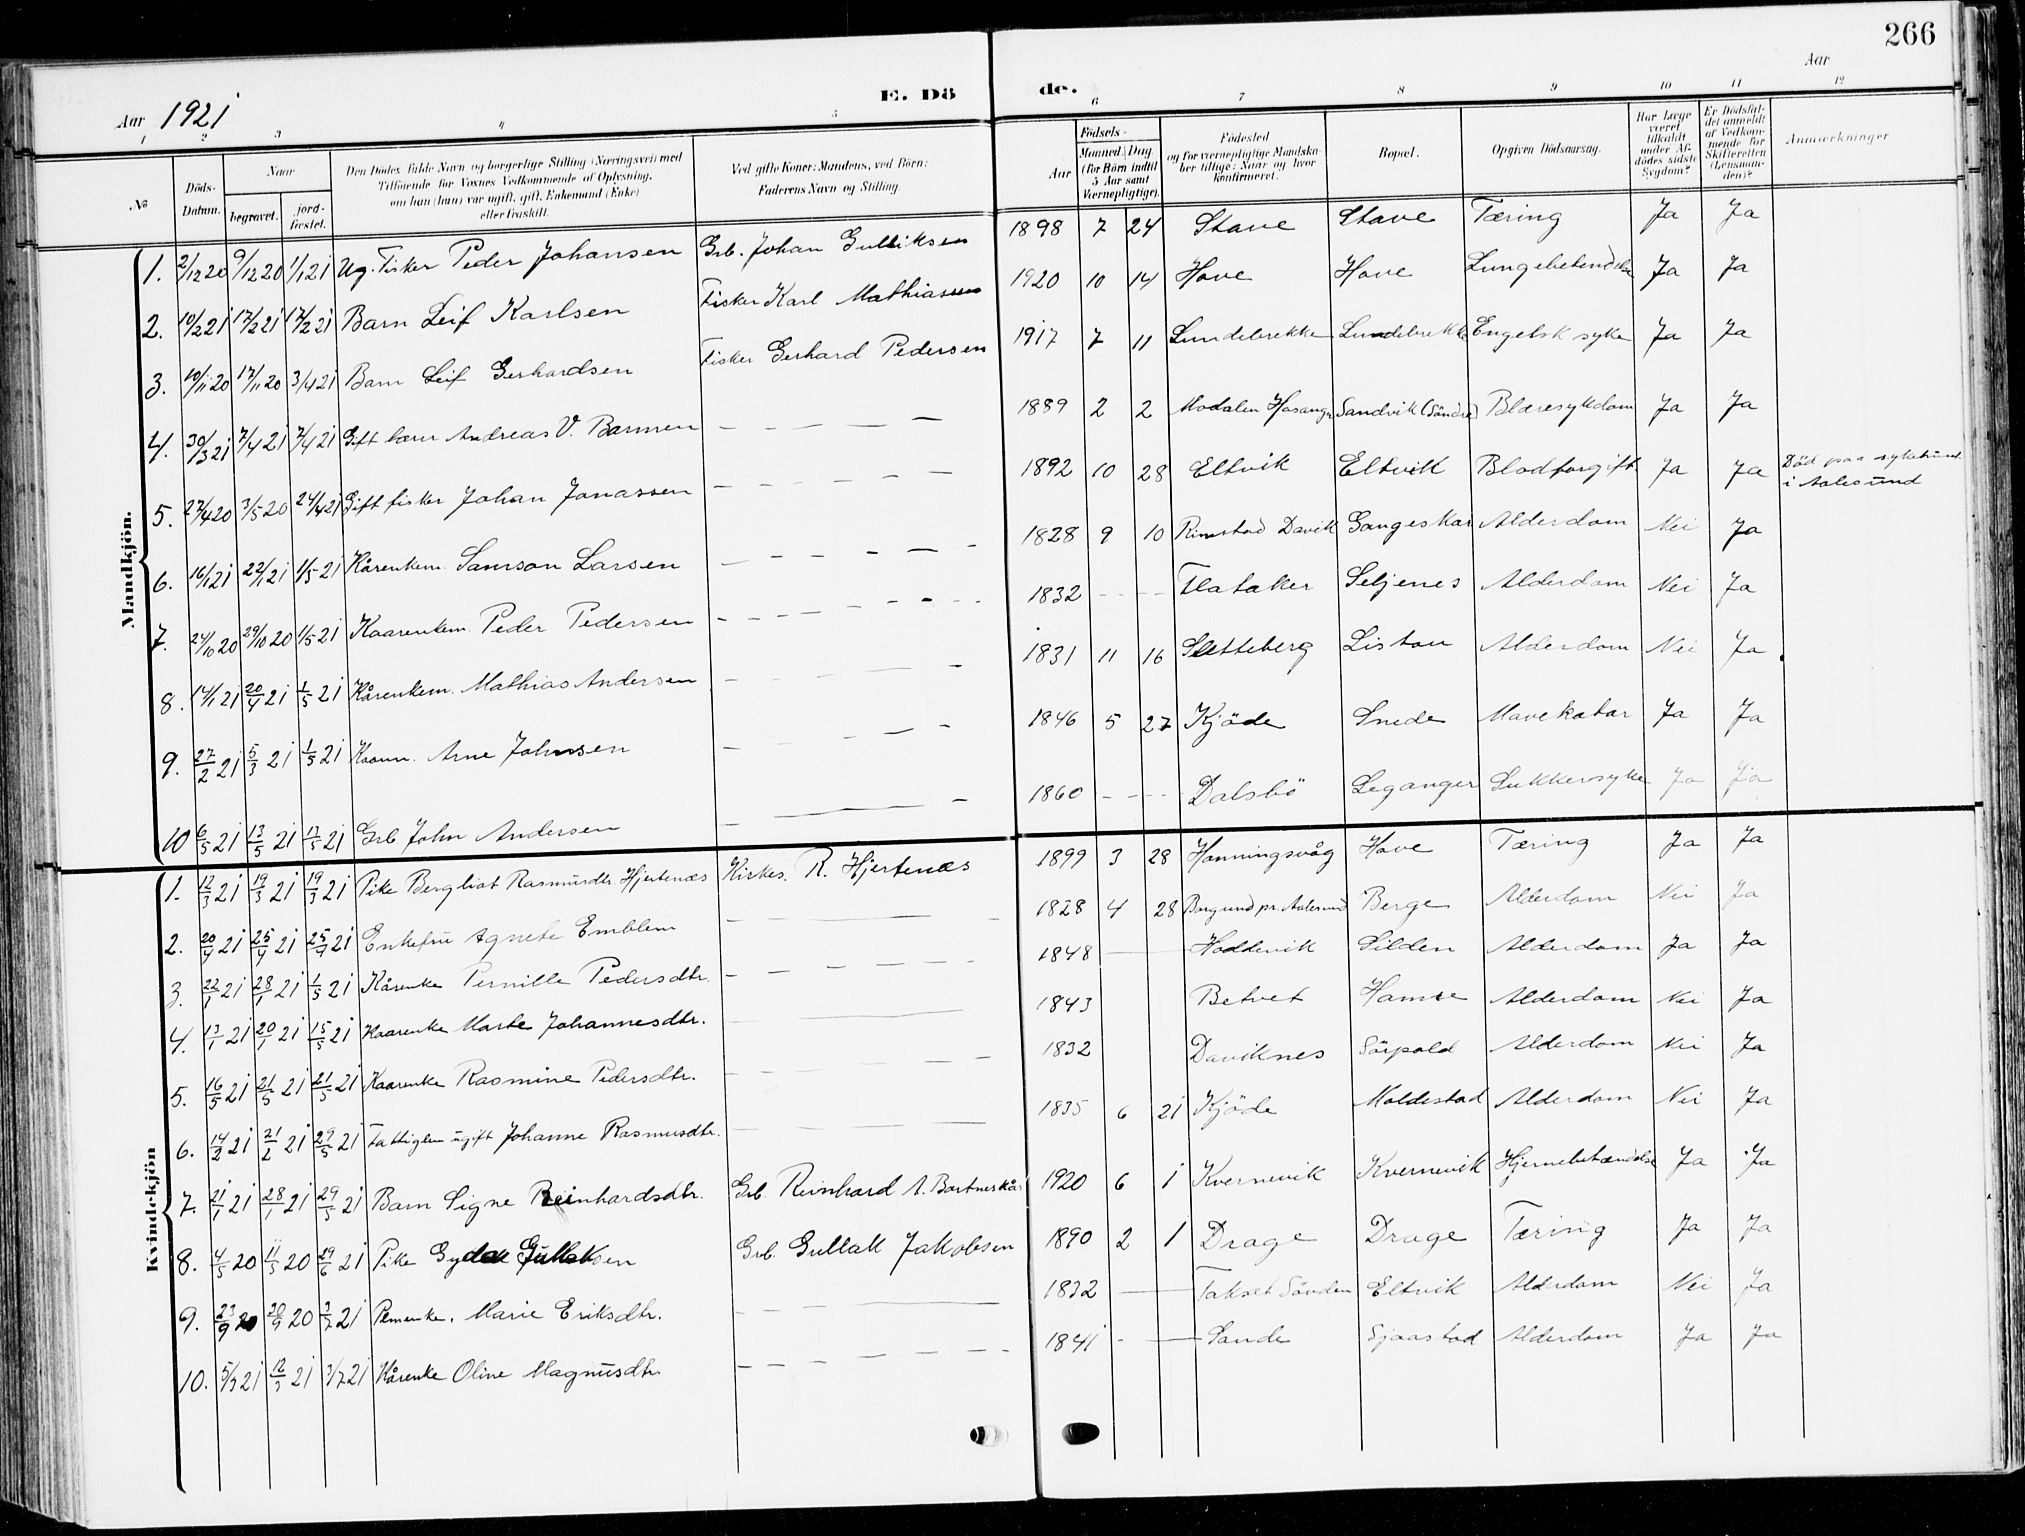 266
Aar 1921
E. Dö
de.
Aar
1 2 3 4 5 6 7 8 9 10 11 12
№
Döds-Datum.
Naar
begravet.
jord-fæstet.
Den Dödes fulde Navn og borgerlige Stilling (Næringsvei) med
Tilföiende for Voxnes Vedkommende af Oplysning,
om han (hun) var ugift, gift, Enkemand (Enke)
eller fraskilt.
Ved gifte Koner: Mandens, ved Börn:
Faderens Navn og Stilling.
Födsels-
Aar
Maaned. Dag.
(for Börn indtil
5 Aar samt
Værnepligtige).
Födested
og for værnepligtige Mandska-
ber tillige: Naar og hvor
konfirmeret.
Bopæl.
Opgiven Dödsaarsag.
Har Læge
været
tilkaldt
under Af-
dödes sidste
Sygdom?
Er Dödsfal-
det anmeldt
af Vedkom-
mende for
Skifteretten
(Lensman-
den)?
Anmærkninger
Mandkjön.
1. 2/12 20 9/12 20 1/1 21 Ug. Fisker Peder Johansen Grb. Johan Gulliksen 1898 7 24 Stave Stave Tæring Ja Ja
2. 10/2 21 17/2 21 17/2 21 Barn Leif Karlsen Fisker Karl Mathiassen 1920 10 14 Hove Hove Lungebetendelse Ja Ja
3. 10/11 20 17/11 20 3/4 21 Barn Leif Gerhardsen Fisker Gerhard Pedersen 1917 7 11 Lundebrekke Lundebrekke Engelsk syke Ja Ja
4. 30/3 21 7/4 21 7/4 21 Gift lærer Andreas V. Barmen — — — — 1889 2 2 Modalen Hosanger Sandvik (Söndre) Blæresykdom Ja Ja
5. 27/4 20 3/5 20 24/4 21 Gift fisker Johan Jonassen — — — — 1892 10 28 Eltvik Eltvik Blodforgift Ja Ja Död paa sykehuset
i Aalesund
6. 16/1 21 22/1 21 1/5 21 Kårenkem. Samson Larsen — — — — 1828 9 10 Rimstad Davik Gangeskar Alderdom Nei Ja
7. 24/10 20 29/10 20 1/5 21 Kaarenkem. Peder Pedersen — — — — 1832 — — Flataker Seljenes Alderdom Nei Ja
8. 14/1 21 20/1 21 1/5 21 Kårenkem. Mathias Andersen — — — 1831 11 16 Sletteberg Listou Alderdom Nei Ja
9. 27/2 21 5/3 21 1/5 21 Kaarm. Arne Johnsen — — — 1846 5 27 Kjöde Snede Mavekatar Ja Ja
10 6/5 21 13/5 21 17/5 21 Grb John Andersen — — — 1860 — — Dalsbö Leganger Sukkersyke Ja Ja
Kvindekjön
1. 12/3 21 19/3 21 19/3 21 Pike Bergliot Rasmusdtr. Hjertenæs Kirkes. R. Hjertenæs 1899 3 28 Honningsvåg Hove Tæring Ja Ja
2. 20/4 21 25/4 21 25/4 21 Enkefru Agnete Emblem — — — 1828 4 28 Borgund pr. Aalesund Berge Alderdom Nei Ja
3. 22/1 21 28/1 21 1/5 21 Kårenke Pernille Pedersdtr. — — — 1848 — Hoddevik Silden Alderdom Ja Ja
4. 13/1 21 20/1 21 15/5 21 Kaarenke Marte Johannesdtr. — — — 1843 Betvet Hamre Alderdom Nei Ja
5. 16/5 21 21/5 21 21/5 21 Kaarenke Rasmine Pedersdtr. — — — 1832 Daviknes Sörpold Alderdom Nei Ja
6. 14/2 21 21/2 21 29/5 21 Fattiglem ugift Johanne Rasmusdtr. — — — 1835 6 21 Kjöde Moldestad Alderdom Nei Ja
7. 21/1 21 28/1 21 29/5 21 Barn Signe Reinhardsdtr. Grb. Reinhard A. Bortneskår 1920 6 1 Kvernevik Kvernevik Hjernebetændelse Ja Ja
8. 4/5 20 11/5 20 19/6 21 Pike Gullaksen Grb. Gullak Jakobsen 1890 2 1 Drage Drage Tæring Ja Ja
9. 23/9 20 30/9 20 3/7 21 Pemenke. Marie Eriksdtr. — — 1832 — Takset Sönden Eltvik Alderdom Nei Ja
10. 5/3 21 12/3 21 3/7 21 Kårenke Oline Magnusdtr. — — — 1841 — Sande Sjaastad Alderdom Ja Ja